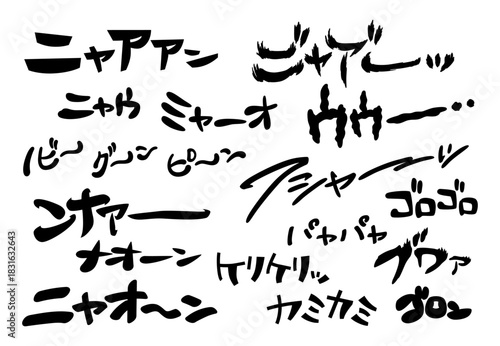 ニャアアン
ジャアーッ
ニャウ
ミャーオ
ウウー…
ビ〜
グ〜ン
ピ〜ン
フシャーーッ
ンナァー
ゴロゴロ
バヤバヤ
ナオーン
ケリケリッ
ブワァ
ニャオ〜ン
カミカミ
ゴロン
Adobe Stock | #1831632643